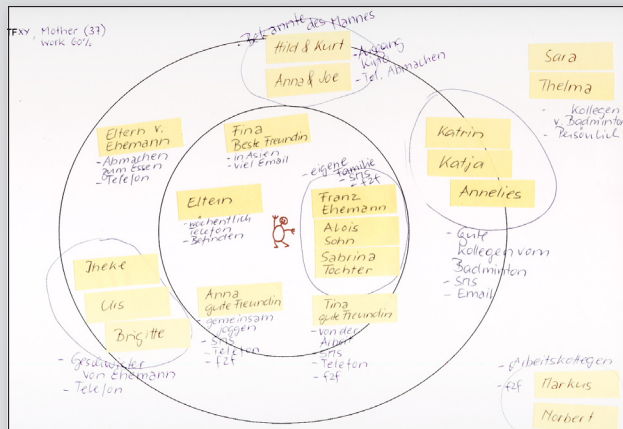 TFXY, Mother (37)
work 60%
- Bekannte des Mannes
Hild & Kurt
Anna & Joe
Kind
- Tel. Abmachen
Sara
Thelma
- Kollegen
v. Badminton
- Persönlich
Eltern v.
Ehemann
- Abmachen
zum Essen
- Telefon
Fina
Beste Freundin
- in Asien
- viel Email
Katrin
Katja
Annelies
- Gute
Kollegen vom
Badminton
- SMS
- Email
Eltern
- wöchentlich
Telefon
- Befinden
- eigene
Familie
- SMS
- f2f
Franz
Ehemann
Alois
Sohn
Sabrina
Tochter
Theke
Urs
Brigitte
- Geschwister
von Ehemann
- Telefon
Anna
gute Freundin
- gemeinsam
joggen
- SMS
- Telefon
- f2f
Tina
gute Freundin
- von der
Arbeit
- SMS
- Telefon
- f2f
- Arbeitskollegen
- f2f
Markus
Norbert